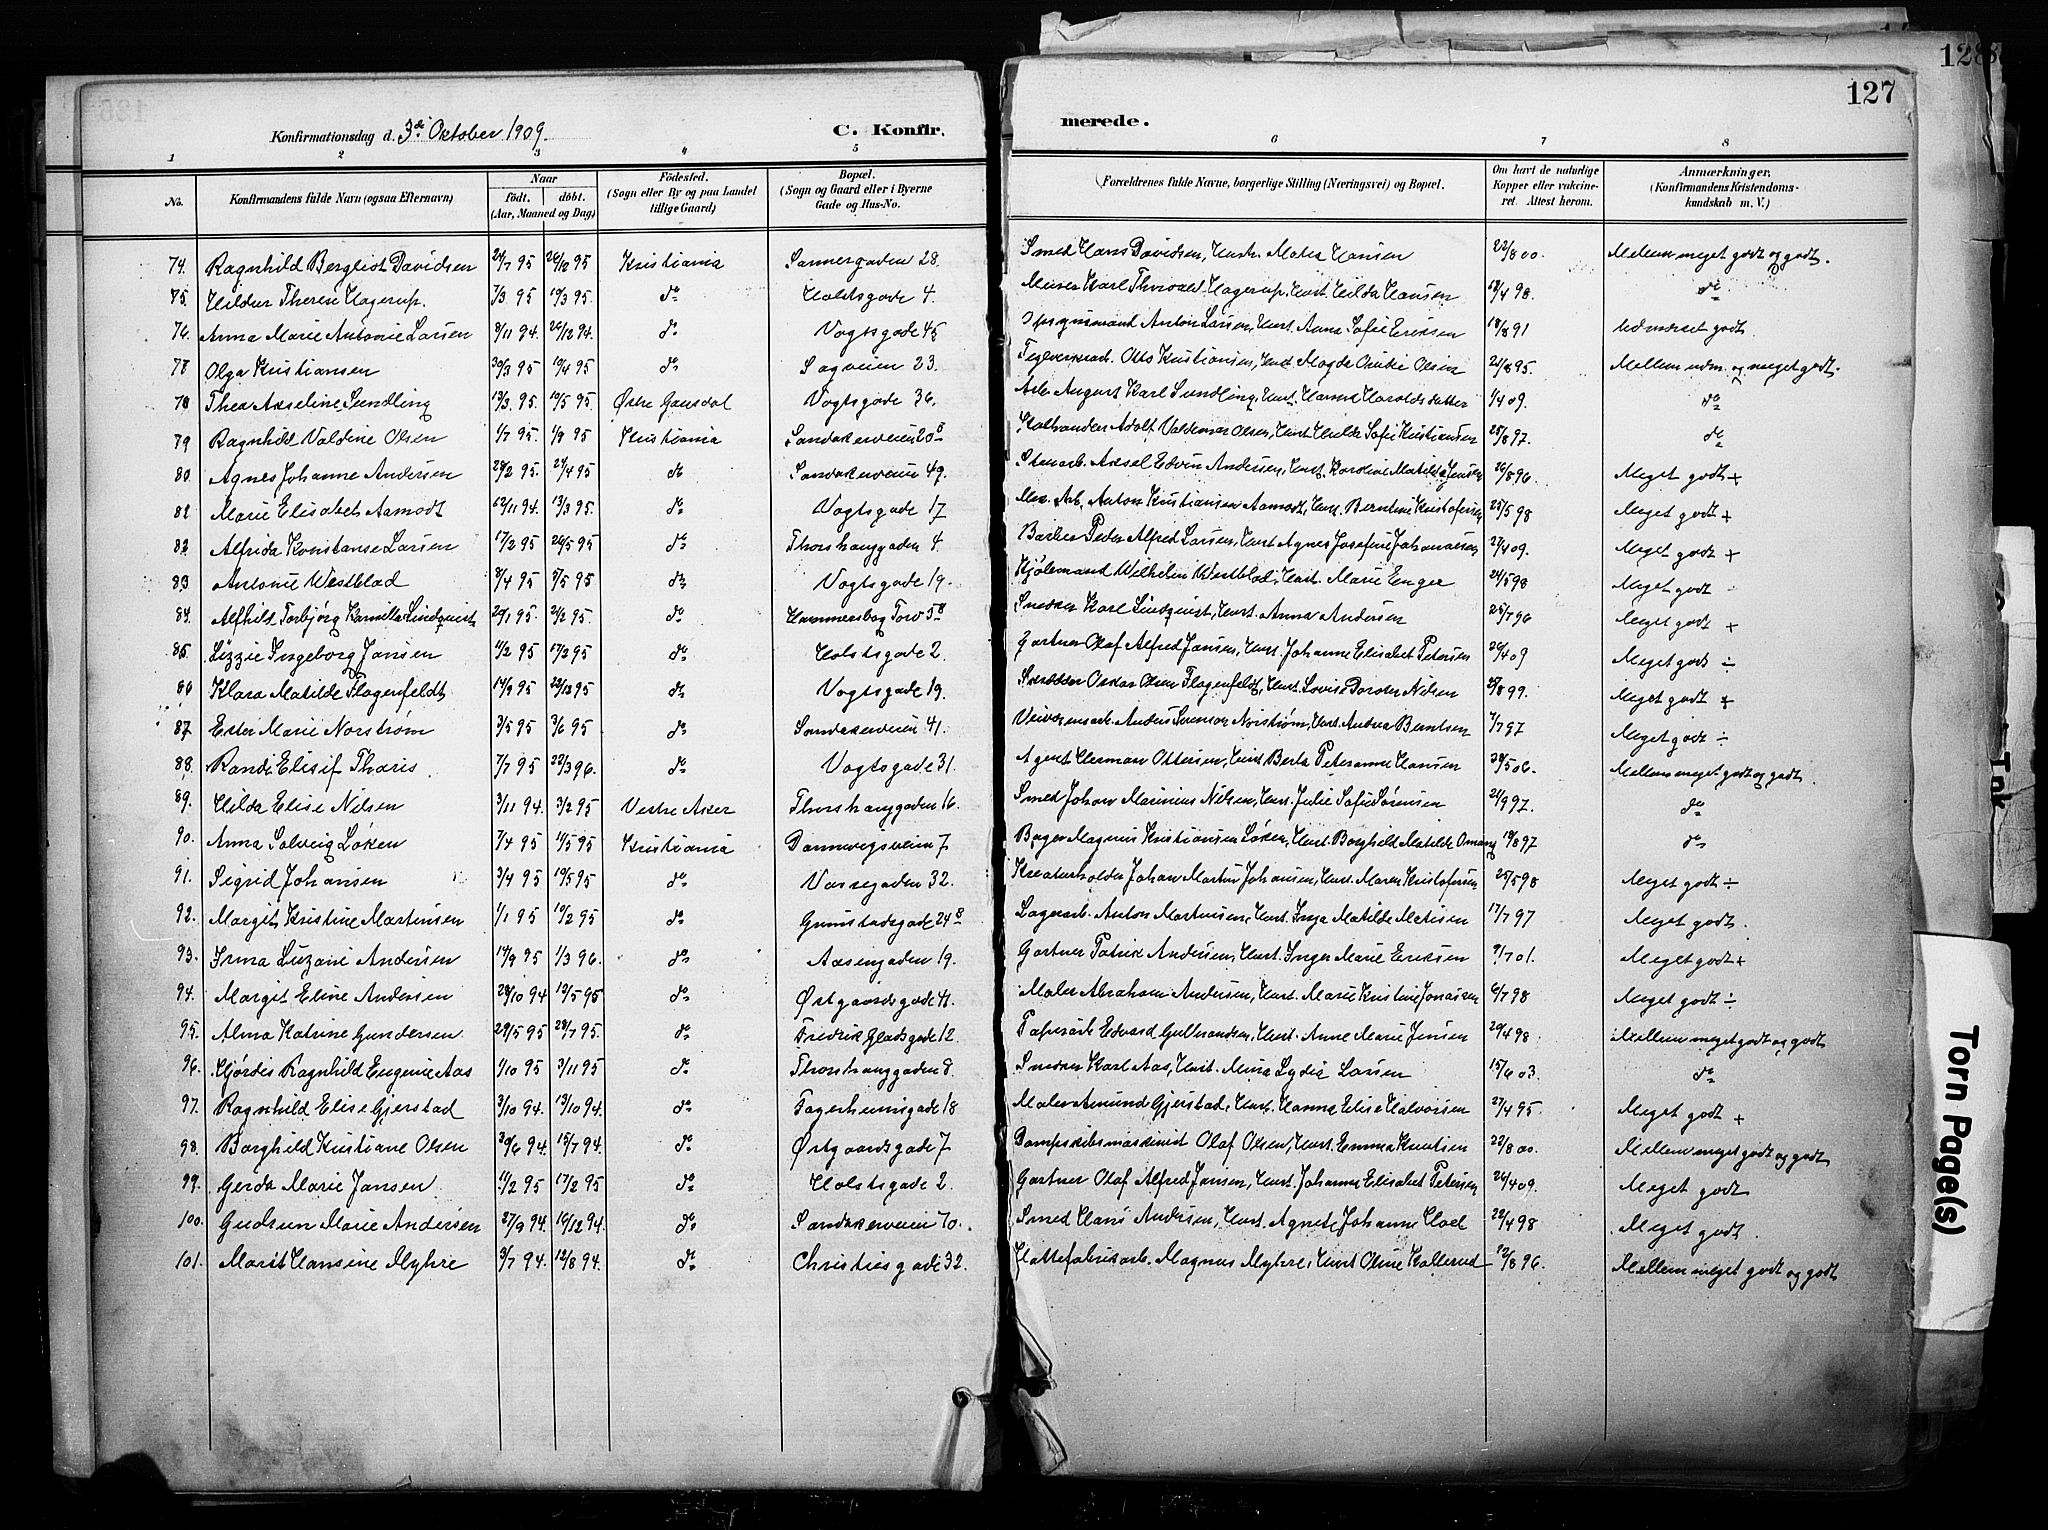 128
127
Konfirmationsdag d. 3de Oktober 1909.
C. Konfir-
merede.
1 2 3 4 5 6 7 8
No. Konfirmandens fulde Navn (ogsaa Efternavn) Naar født. døbt. (Aar, Maaned og Dag) Födested. (Sogn eller By og paa Landet tillige Gaard) Bopæl. (Sogn og Gaard eller i Byerne Gade og Hus-No. Forældrenes fulde Navne, borgerlige Stilling (Næringsvei) og Bopæl. Om havt de naturlige Kopper eller vaccineret. Attest herom. Anmærkninger. (Konfirmandens Kristendomskundskab m. V.)
74. Ragnhild Bergliot Davidsen 95 95 Kristiania Sannergaden 28. Smed Hans Davidsen, Hust. Hansen 22/8 00. Mellem meget godt og godt.
75. Hildur Hagerup. 7/3 95 19/3 95. do Holtsgade 4. Murer Karl Thorvald Hagerup, Hust. Hilda Hansen 18/4 98. do
76. Anna Marie Antonie Larsen 8/11 94. 26/12 94. do Vogtsgade 45 Anton Larsen, Hust. Anna Sofie Eriksen 18/8 91 Udmærket godt.
78 Olga Kristiansen 30/3 95 19/4 95 do Sagveien 23. Teglverksarb. Otto Kristiansen, Hust. Magda Olsen 21/8 95. Mellem udm. og meget godt.
78 Thea Axeline Sundling 13/3. 95 19/5 95. Østre Gausdal Vogtsgade 36. Arb. August Karl Sundling, Hust. Hanna Haroldsdatter 1/4 09. do
79 Ragnhild Valdine Olsen 1/7 95. 1/9 95 Kristiania Sandakerveien 20 B Adolf Valdemar Olsen, Hust. Hilda Sofie Kristiansen 25/8 97. do
80. Agnes Johanne Andersen 28/2 95. 21/4 95 do Sandakerveien 49. Stenarb. Axsel Edvin Andersen, Hust. Karoline Matilde Jensen 26/8 96. Meget godt +
82 Marie Elisabet Aamodt 12/11 94. 13/3 95. do Vogtsgade 17 Arb. Anton Kristiansen Aamodt, Hust. Berntine Kristofersen 25/5 98 Meget godt +
82 Alfrida Konstanse Larsen 17/2 95 26/5 95 do Thorshauggaden 4. Barber Peder Alfred Larsen, Hust. Agnes Josefine Johannesen 27/4 09. Meget godt +
83 Antonie Westblad 8/4 95 5/5 95 do Vogtsgade 19. Wilhelm Westblad, Hust. Marie Enger 24/5 98 Meget godt
84. Alfhild Torbjørg Kamilla Lindquist 29/1 95. 24/2 95. do Hammersborg Torv 5 B Snedker Karl Lindquist, Hust. Anna Andersen 25/7 96 Meget godt +
85. Lizzie Ingeborg Jansen 11/2 95 17/2 95 do Holstsgade 2. Gartner Olaf Alfred Jansen, Hust. Johanne Elisabet Petersen 26/4 09 Meget godt ÷
86 Klara Matilde Flagenfeldt 14/9 95 95 do Vogtsgade 19. Skrædder Oskar Olsen Flagenfeldt, Hust. Lovise Nilsen 27/8 99. Meget godt +
87 Ester Marie Norstrøm 3/5 95 3/6 95 do Sandakerveien 41. Anders Norstrøm, Hust. Berntsen 7/7 97 Meget godt ÷
88. Randi Elisif Tharis 7/7 95 22/3 96. do Vogtsgade 31. Agent Herman Ottersen, Hust. Berta Hansen 28/5 06. Mellem meget godt og godt.
89. Hilda Elise Nilsen 3/11 94. 3/2 95 Vestre Aker Thorshauggaden 16. Smed Johan Marinius Nilsen, Hust. Julie Sofie Sørensen 21/9 97. do
90. Anna Solveig Løken 7/4 95 11/5 95 Kristiania Dannevigsveien 7 Bager Magnus Kristiansen Løken, Hust. Borghild Matilde Omang 19/8 97 do
91. Sigrid Johansen 3/4 95 19/5 95 do Vossegaden 32. Kreaturholder Johan Martin Johansen, Hust. Maren Kristofersen 25/5 98 Meget godt ÷
92. Margit Kristine Martinsen 1/1 95 19/2 95 do Grimstadsgade 24 B Lagerarb. Anton Martinsen, Hust. Inga Matilde Matisen 17/7 97 Meget godt.
93. Irma Luzanie Andersen 14/9 95 1/3 96. do Aasengaden 19. Gartner Patrik Andersen, Hust. Inger Marie Eriksen 9/7 01. Meget godt +
94. Margit Eline Andersen 28/10 94 12/5 95 do Østgaardsgade 41 Maler Abraham Andersen, Hust. Marie Kristine Jonassen 6/7 98 Meget godt ÷
95. Alma Katrine Gundersen 29/5 95 28/7 95. do Fredrik Gladsgade 12. Papirarb. Edvard Gulbrandsen, Hust. Anne Marie Jensen 20/4 98 Mellem meget godt og godt
96. Hjørdis Ragnhild Eugenie Aas 1/10 95 3/11 95 do Thorshauggaden 8. Snedker Karl Aas, Hust. Mina Lydia Larsen 15/6 03. do
97. Ragnhild Elise Gjerstad 3/10 94. 13/10 94. do Fagerheimsgade 18 Maler Amund Gjerstad, Hust. Hanna Elise Halvorsen 27/4 95. Meget godt +
98. Borghild Kristiane Olsen 30/6 94. 15/7 94. do Østgaardsgade 7 Dampskibsmaskinist Olaf Olsen, Hust. Emma Knutsen 22/8 00. Mellem meget godt og godt
99. Gerda Marie Jansen. 11/2 95 17/2 95 do Holstsgade 2. Gartner Olaf Alfred Jansen, Hust. Johanne Elisabet Petersen 26/4 09. Meget godt
100. Gudrun Marie Andersen 27/9 94. 16/12 94. do Sandakerveien 70. Smed Hans Andersen, Hust. Agnete Johanne Hoel 22/4 98 Meget godt.
101. Marit Hansine Myhre 3/7 94. 12/8 94. do Christiesgade 32. Hattefabrikarb. Magnus Myhre, Hust. Oline Kollerud 12/8 96. Mellem meget godt og godt
Torn Page(s)